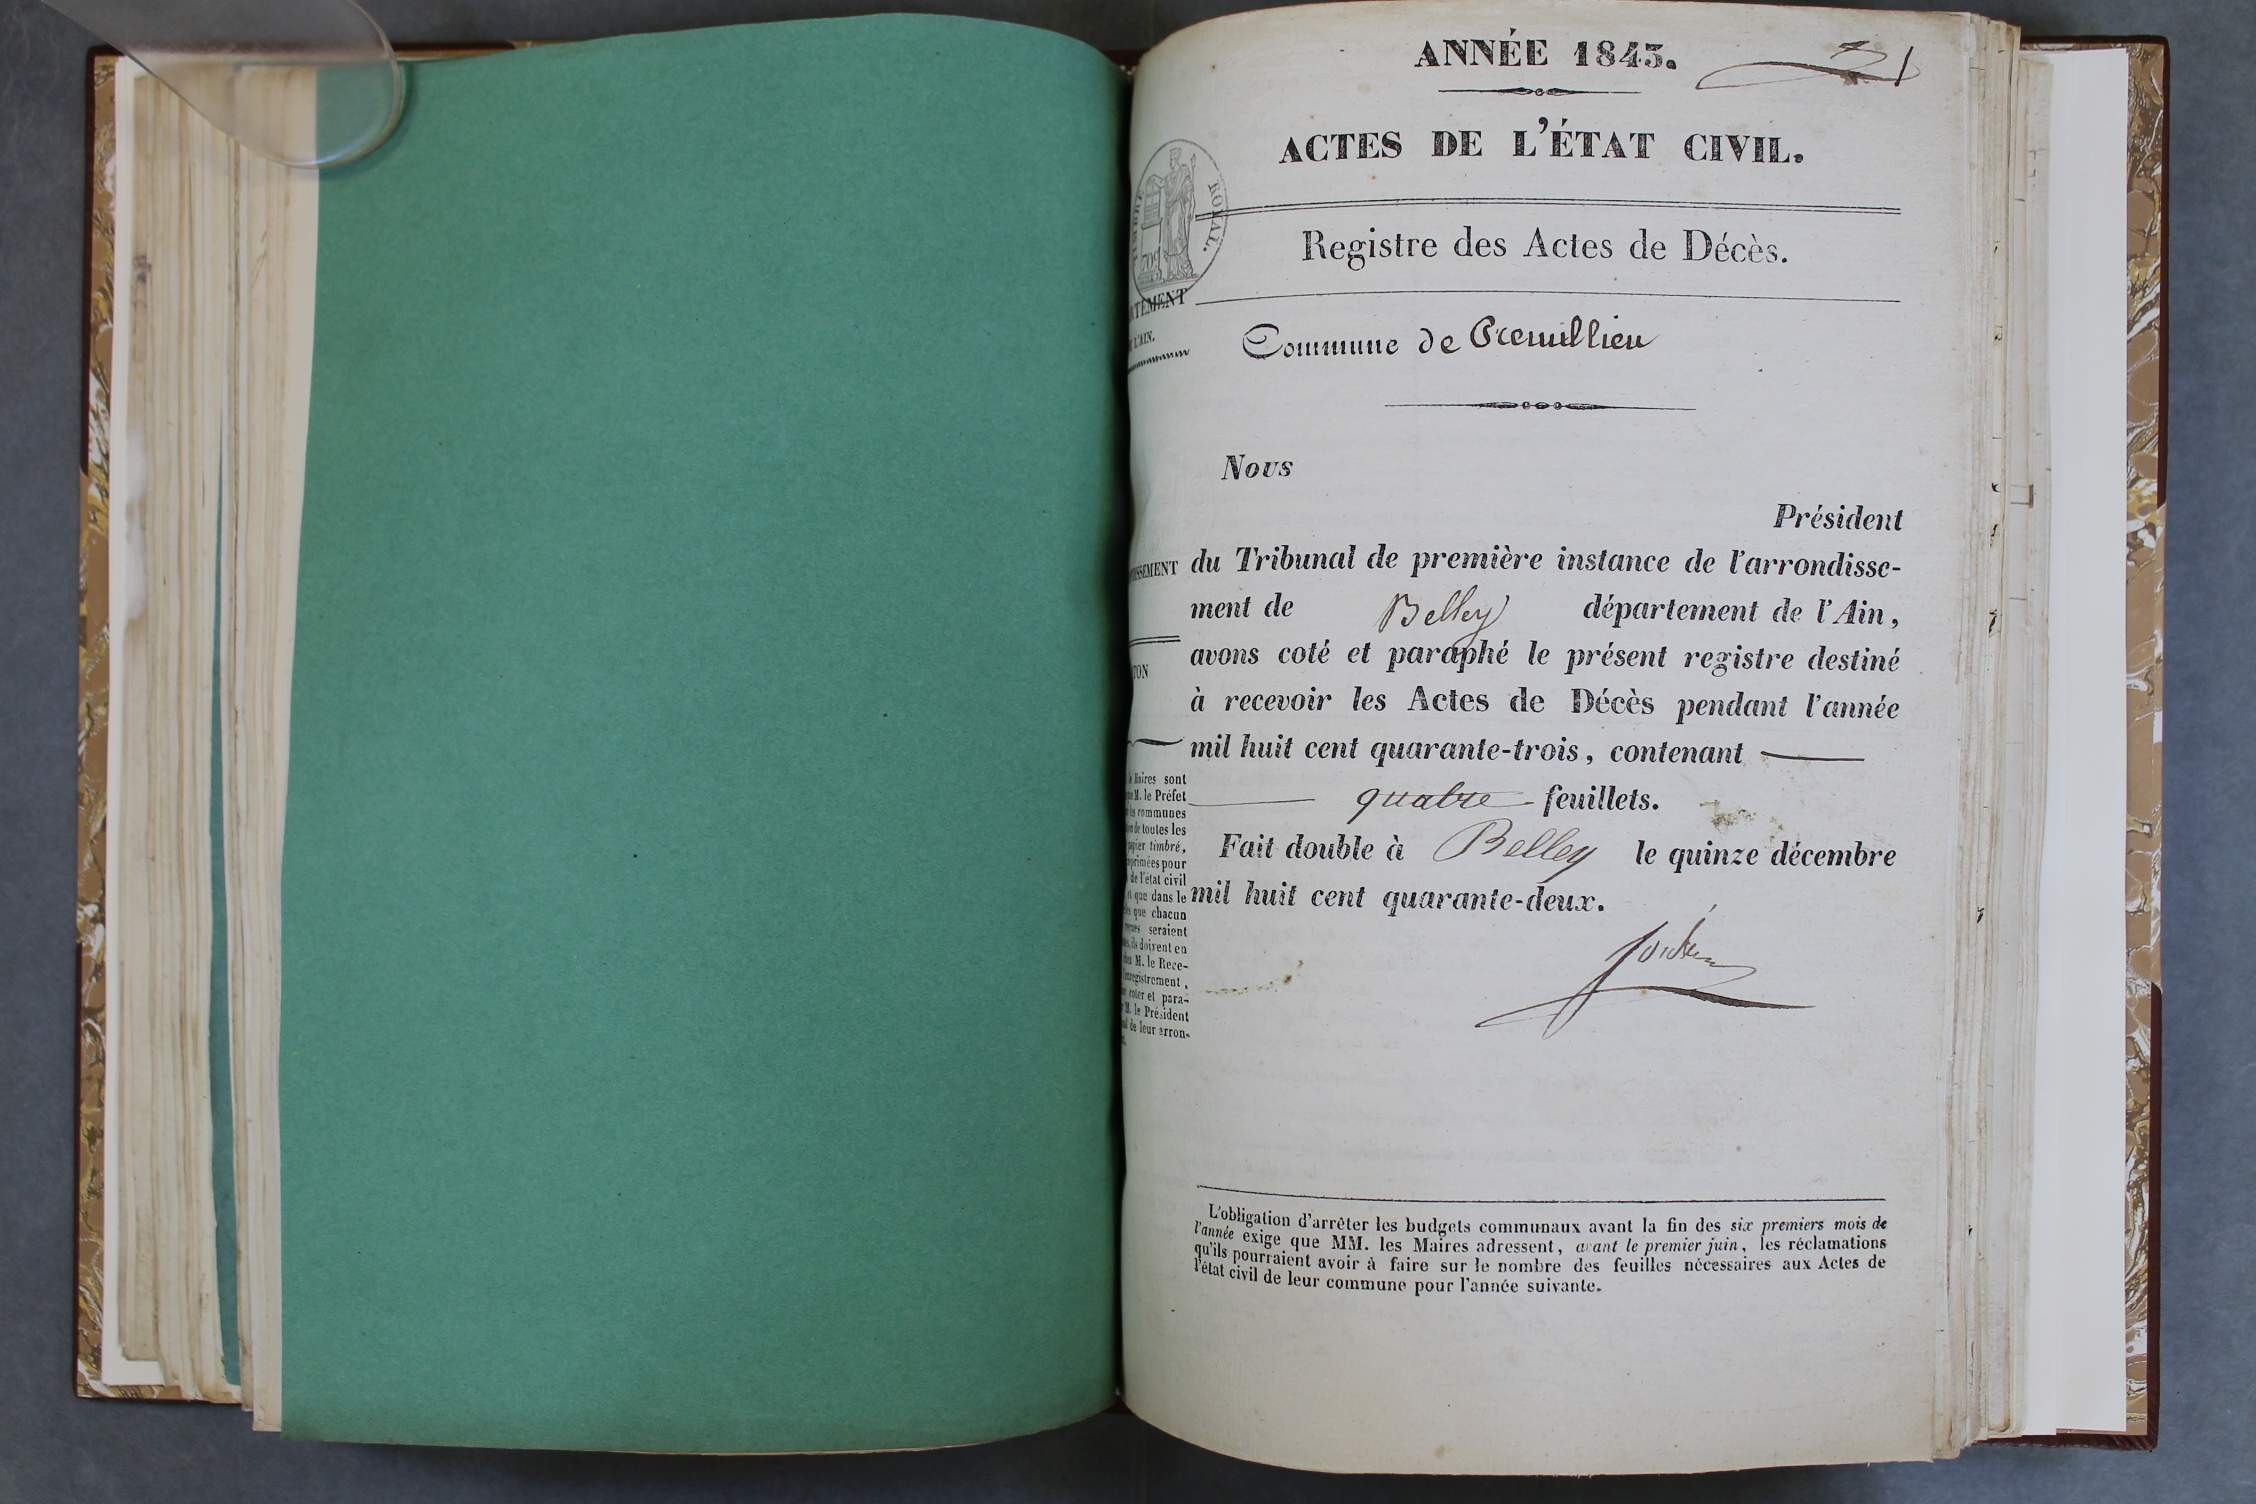 ANNÉE 1843.
1
ACTES DE L'ÉTAT CIVIL.
ROYAL.
Registre des Actes de Décès.
L'AIN.
Commune de Premillieu
Nous
Président
du Tribunal de première instance de l'arrondisse-
ment de Belley département de l'Ain,
avons coté et paraphé le présent registre destiné
à recevoir les Actes de Décès pendant l'année
mil huit cent quarante-trois, contenant
quatre feuillets.
Fait double à Belley le quinze décembre
mil huit cent quarante-deux.
Maires sont
M. le Préfet
communes
de toutes les
papier timbré,
imprimées pour
de l'état civil
que dans le
que chacun
seraient
ils doivent en
M. le Rece-
enregistrement,
coter et para-
M. le Président
de leur arron-
L'obligation d'arrêter les budgets communaux avant la fin des six premiers mois de
l'année exige que MM. les Maires adressent, avant le premier juin, les réclamations
qu'ils pourraient avoir à faire sur le nombre des feuilles nécessaires aux Actes de
l'état civil de leur commune pour l'année suivante.